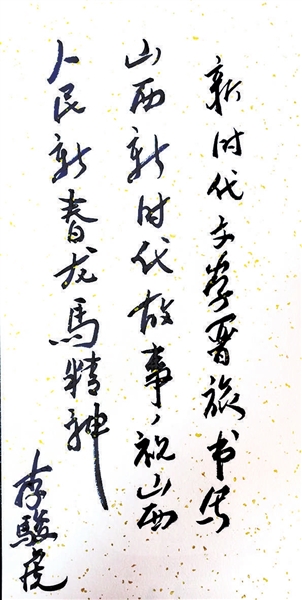 新时代文学晋旅书写
山西新时代故事,祝山西
人民新春龙马精神
李骏虎